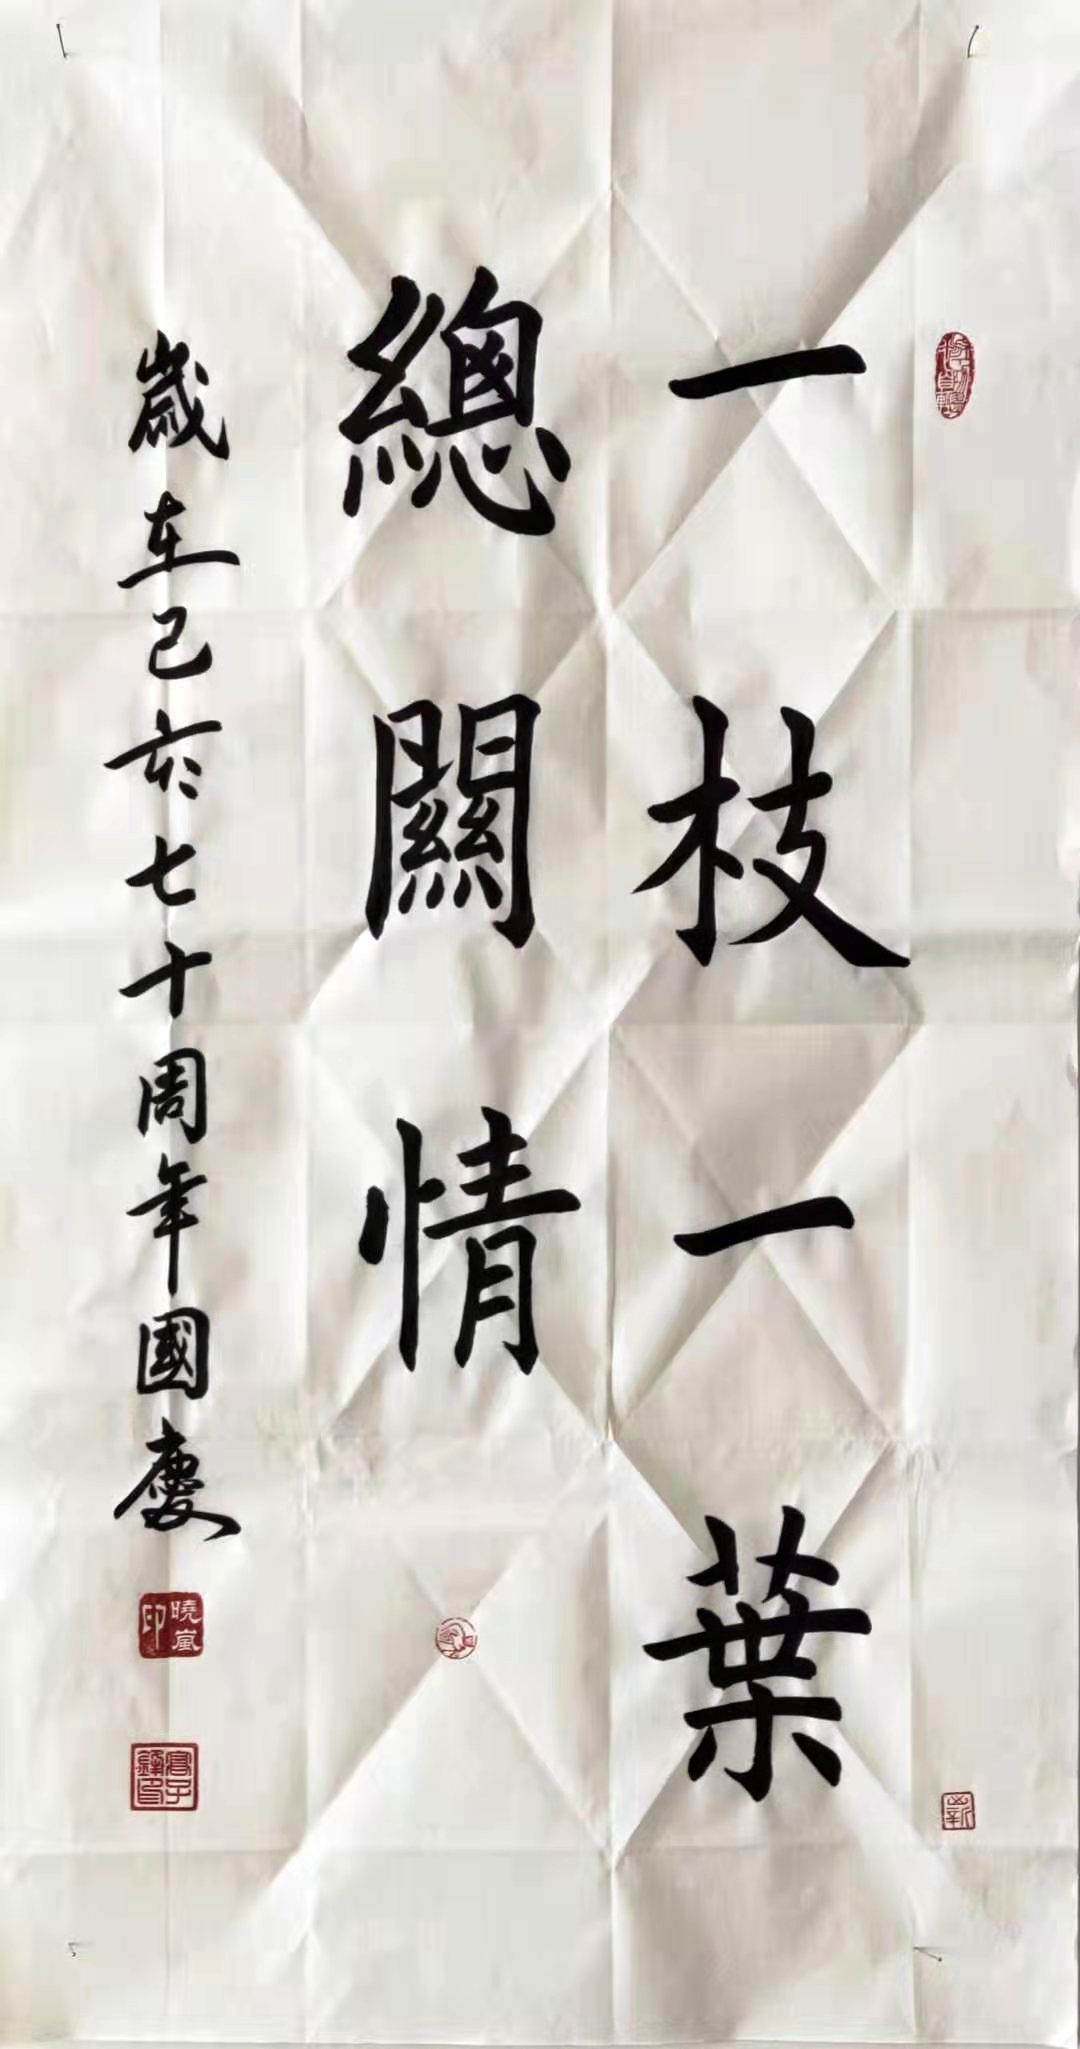 一枝一葉
總關情
歲在己亥七十周年國慶
曉嵐印